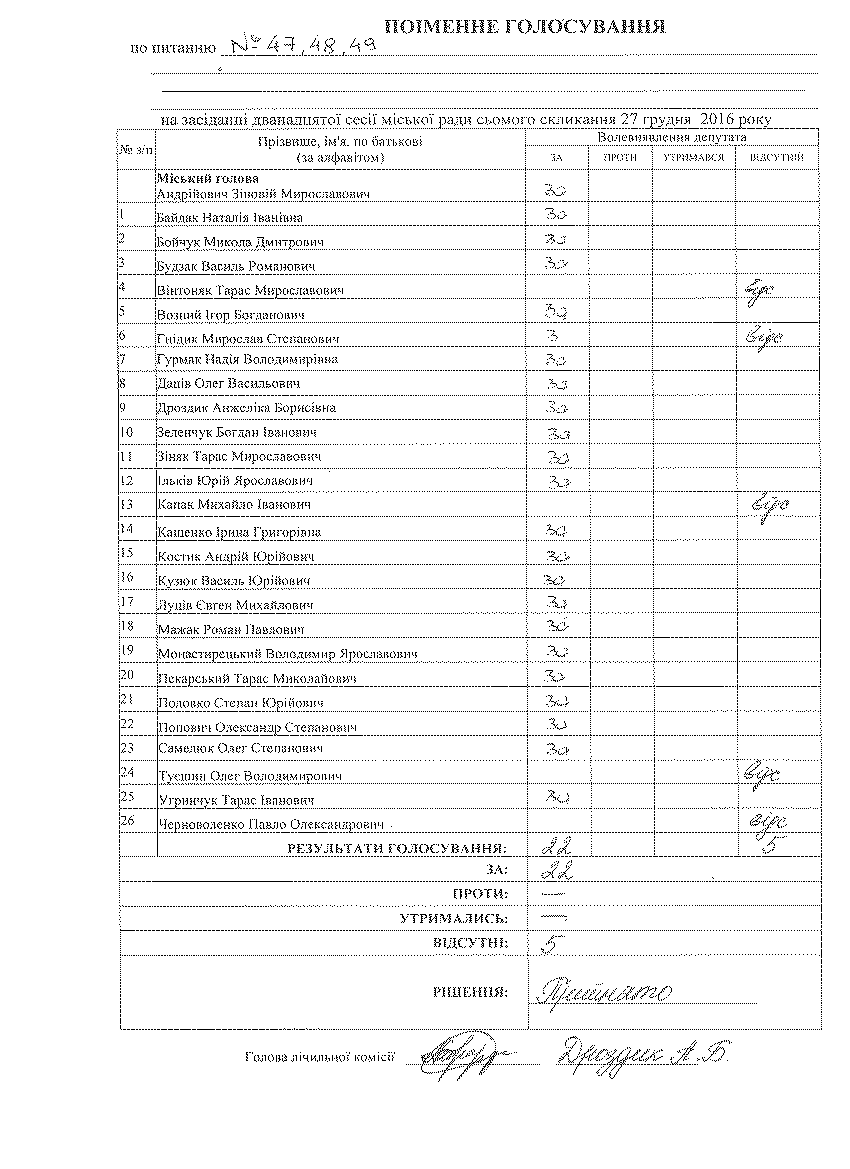 ПОІМЕННЕ ГОЛОСУВАННЯ
по питанню № 47, 48, 49
на засіданні дванадцятої сесії міської ради сьомого скликання 27 грудня 2016 року
№ з/п Прізвище, ім'я, по батькові (за алфавітом) Волевиявлення депутата
ЗА ПРОТИ УТРИМАВСЯ ВІДСУТНІЙ
Міський голова
Андрійович Зіновій Мирославович За
1 Байдак Наталія Іванівна За
2 Бойчук Микола Дмитрович За
3 Будзак Василь Романович За
4 Вінтоняк Тарас Мирославович відс
5 Возний Ігор Богданович За
6 Гнідик Мирослав Степанович З відс
7 Гурмак Надія Володимирівна За
8 Даців Олег Васильович За
9 Дроздик Анжеліка Борисівна За
10 Зеленчук Богдан Іванович За
11 Зіняк Тарас Мирославович За
12 Ільків Юрій Ярославович За
13 Капак Михайло Іванович відс
14 Кащенко Ірина Григорівна За
15 Костик Андрій Юрійович За
16 Кузюк Василь Юрійович За
17 Луців Євген Михайлович За
18 Мажак Роман Павлович За
19 Монастирецький Володимир Ярославович За
20 Пекарський Тарас Миколайович За
21 Подовко Степан Юрійович За
22 Попович Олександр Степанович За
23 Самелюк Олег Степанович За
24 Тусшин Олег Володимирович відс
25 Угринчук Тарас Іванович За
26 Черноволенко Павло Олександрович відс
РЕЗУЛЬТАТИ ГОЛОСУВАННЯ: 22 5
ЗА: 22
ПРОТИ: —
УТРИМАЛИСЬ: —
ВІДСУТНІ: 5
РІШЕННЯ: Прийнято
Голова лічильної комісії Дроздик А.Б.